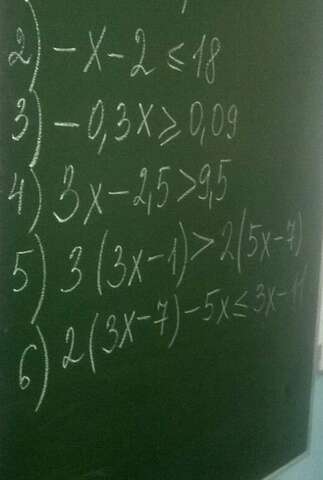 2) -x-2≤18
3) -0,3x≥0,09
4) 3x-2,5>9,5
5) 3(3x-1)>2(5x-7)
6) 2(3x-7)-5x≤3x-11